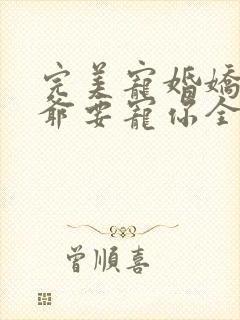 完美寵婚嬌
爺要寵你全
曾順喜